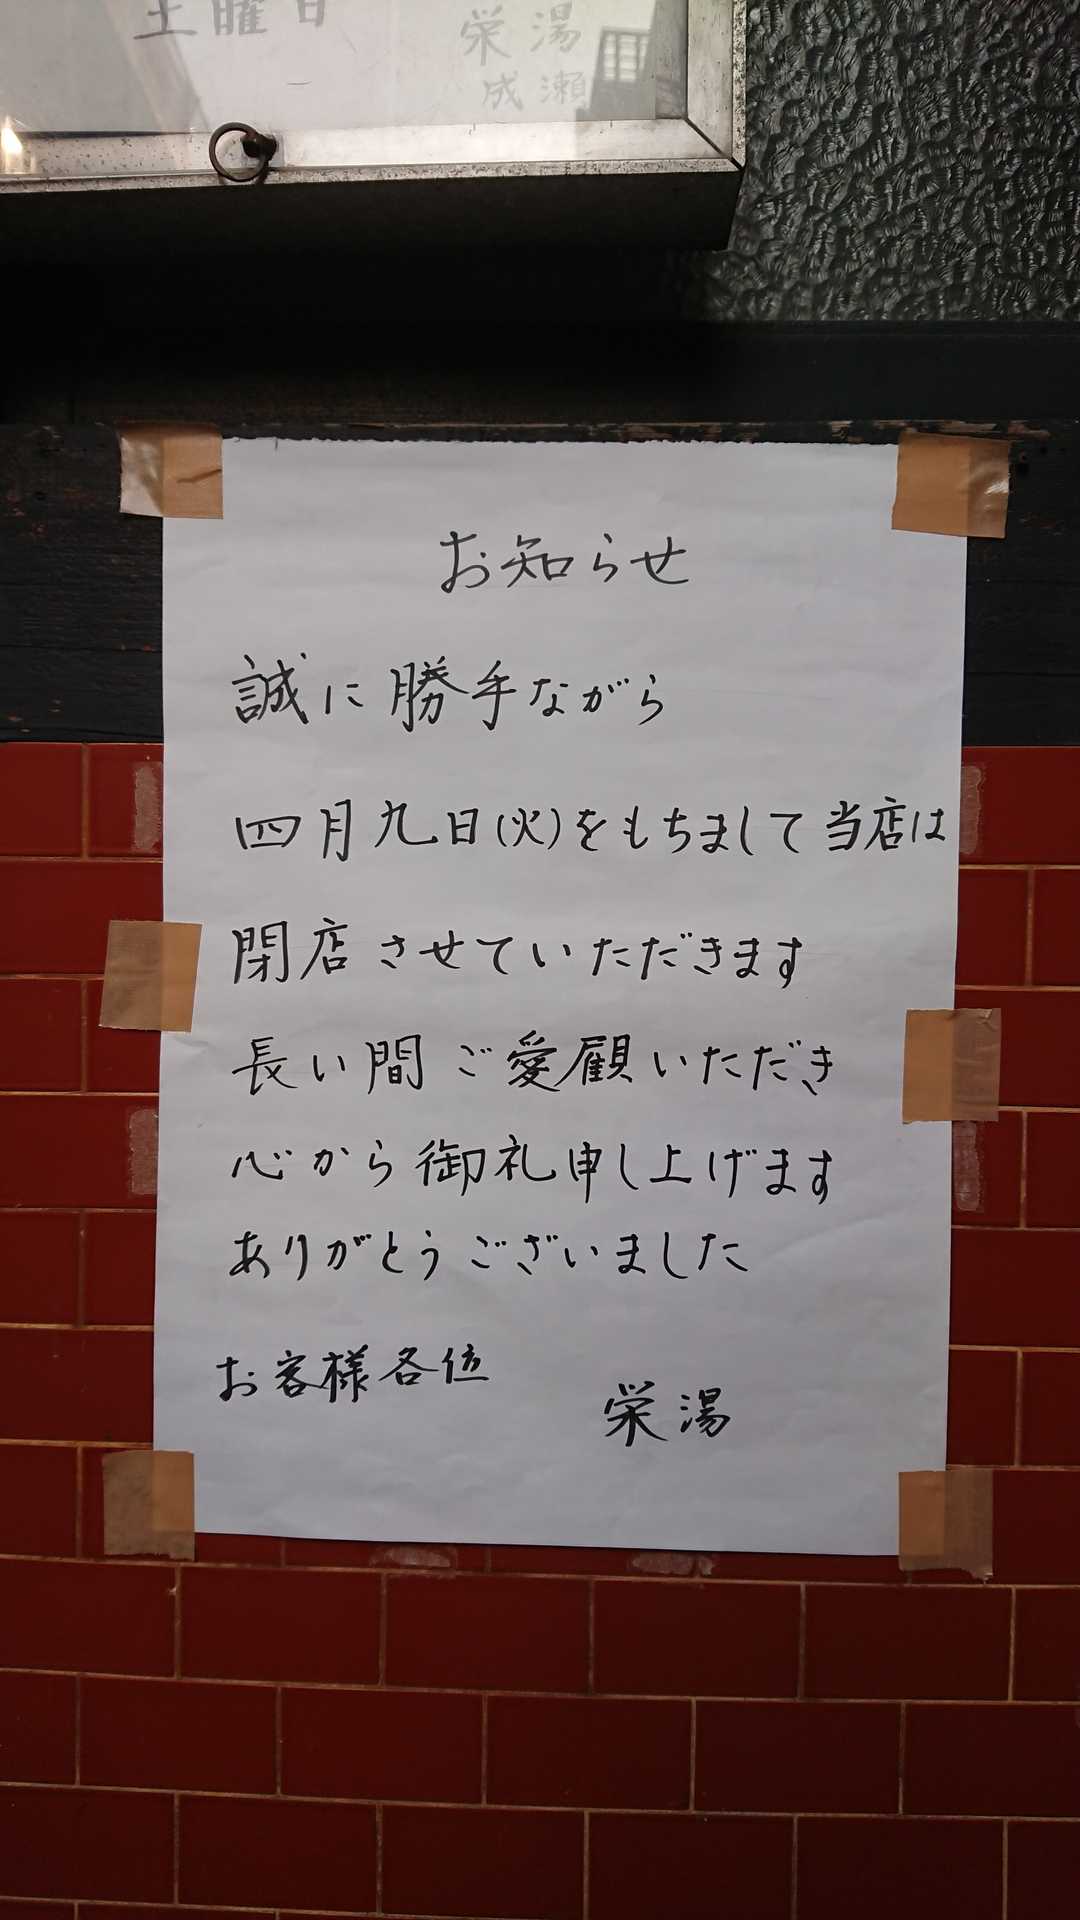 土曜日
栄湯
成瀬
お知らせ
誠に勝手ながら
四月九日(火)をもちまして当店は
閉店させていただきます
長い間ご愛顧いただき
心から御礼申し上げます
ありがとうございました
お客様各位
栄湯